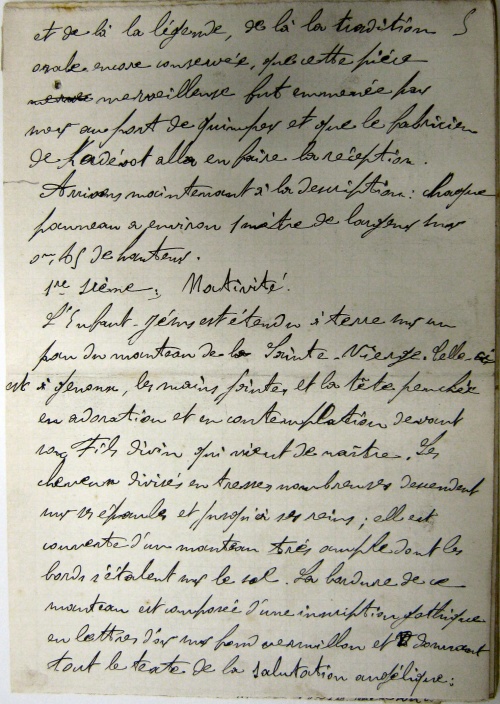 et de là la légende, de là la tradition 5
orale encore conservée, que cette pièce
merveilleuse fut emmenée par
mer au port de Quimper et que le fabricien
de Kerdévot alla en faire la réception.
Arrivons maintenant à la description : chaque
panneau a environ 1 mètre de largeur sur
0m,65 de hauteur.
1re scène : Nativité.
L'Enfant-Jésus est étendu à terre sur un
pan du manteau de la Sainte-Vierge. Celle-ci
est à genoux, les mains jointes et la tête penchée
en adoration et en contemplation devant
son Fils divin qui vient de naître. Les
cheveux divisés en tresses nombreuses descendent
sur ses épaules et jusqu'à ses reins ; elle est
couverte d'un manteau très ample dont les
bords s'étalent sur le sol. La bordure de ce
manteau est composée d'une inscription gothique
en lettres d'or sur fond vermillon et donnant
tout le texte de la salutation angélique :